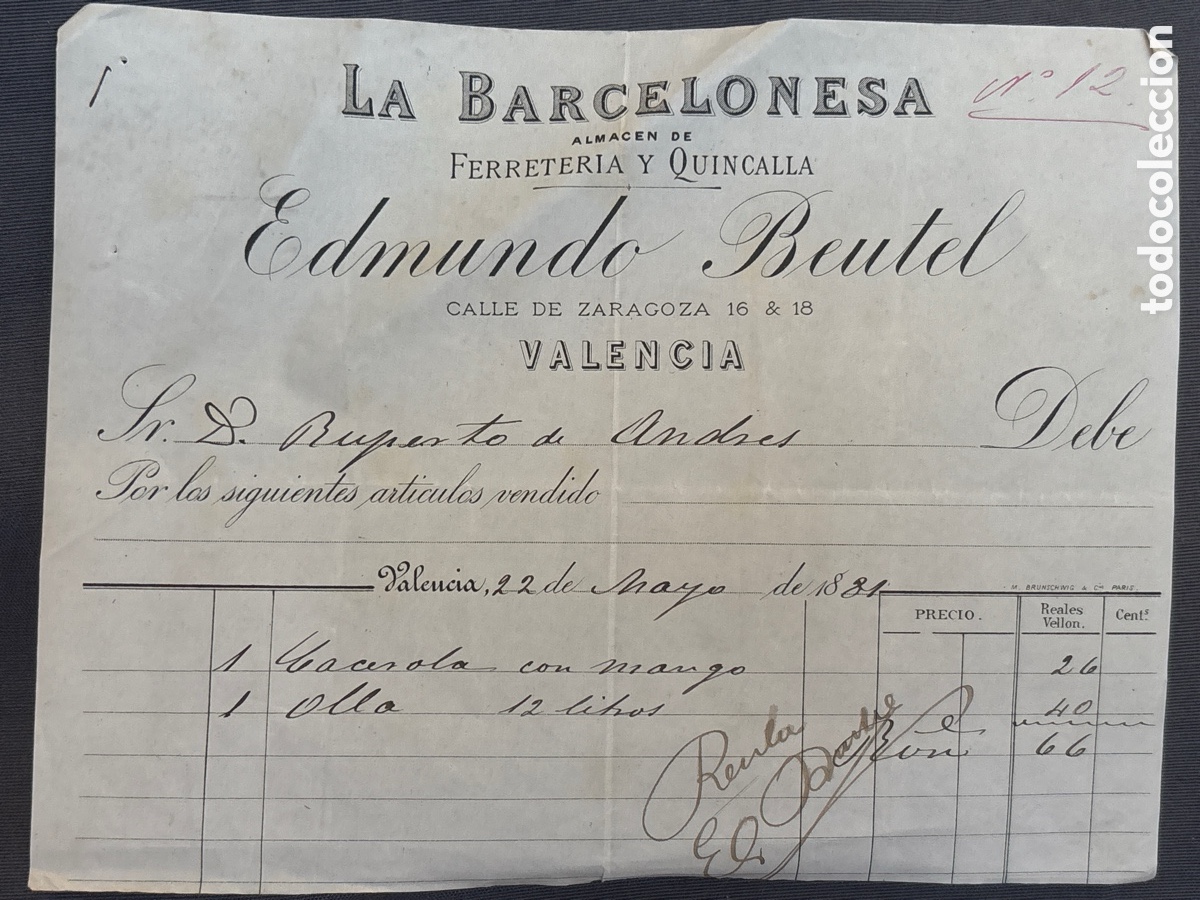 Nº 12.
LA BARCELONESA
ALMACEN DE
FERRETERIA Y QUINCALLA
Edmundo Beutel
CALLE DE ZARAGOZA 16 & 18
VALENCIA
Sr. D. Ruperto de Andres Debe
Por los siguientes articulos vendido
Valencia, 22 de Mayo de 1881
M. BRUNSCHWIG & Cie PARIS.
PRECIO. Reales Vellon. Cents.
1 Cacerola con mango 26
1 Olla 12 litros 40
Rvon 66
todocoleccion